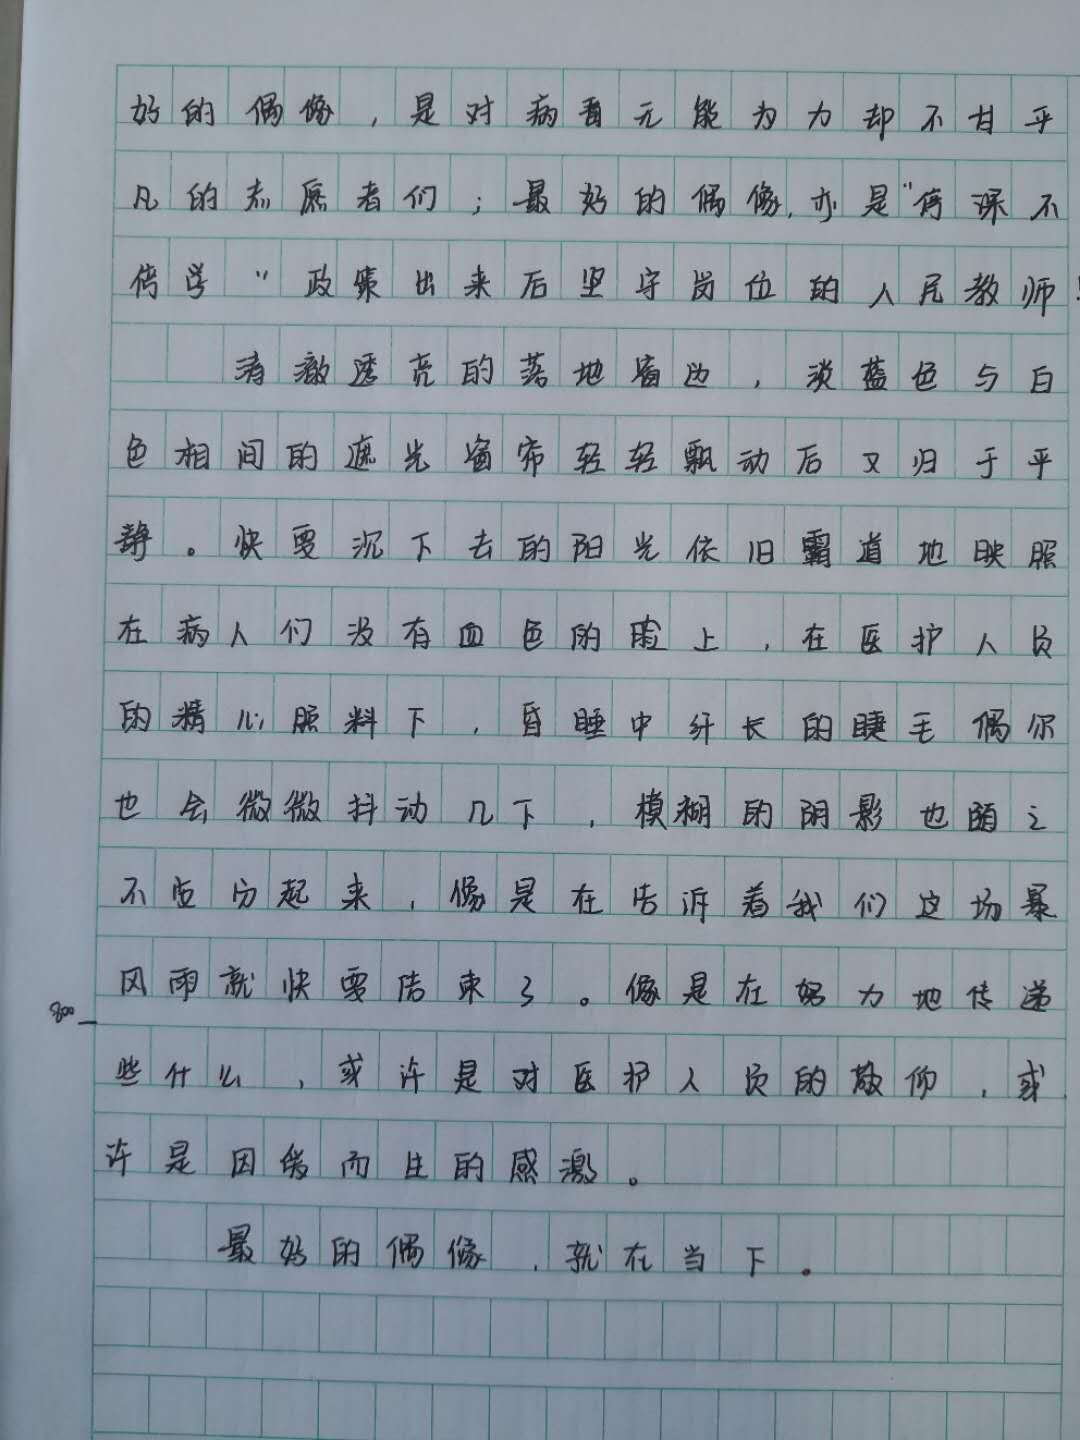 好的偶像，是对病毒无能为力却不甘平
凡的志愿者们；最好的偶像，亦是“停课不
停学”政策出来后坚守岗位的人民教师！
清澈透亮的落地窗边，淡蓝色与白
色相间的遮光窗帘轻轻飘动后又归于平
静。快要沉下去的阳光依旧霸道地映照
在病人们没有血色的脸上，在医护人员
的精心照料下，昏睡中纤长的睫毛偶尔
也会微微抖动几下，模糊的阴影也随之
不安分起来，像是在告诉着我们这场暴
风雨就快要结束了。像是在努力地传递
800
些什么，或许是对医护人员的敬仰，或
许是因爱而生的感激。
最好的偶像，就在当下。